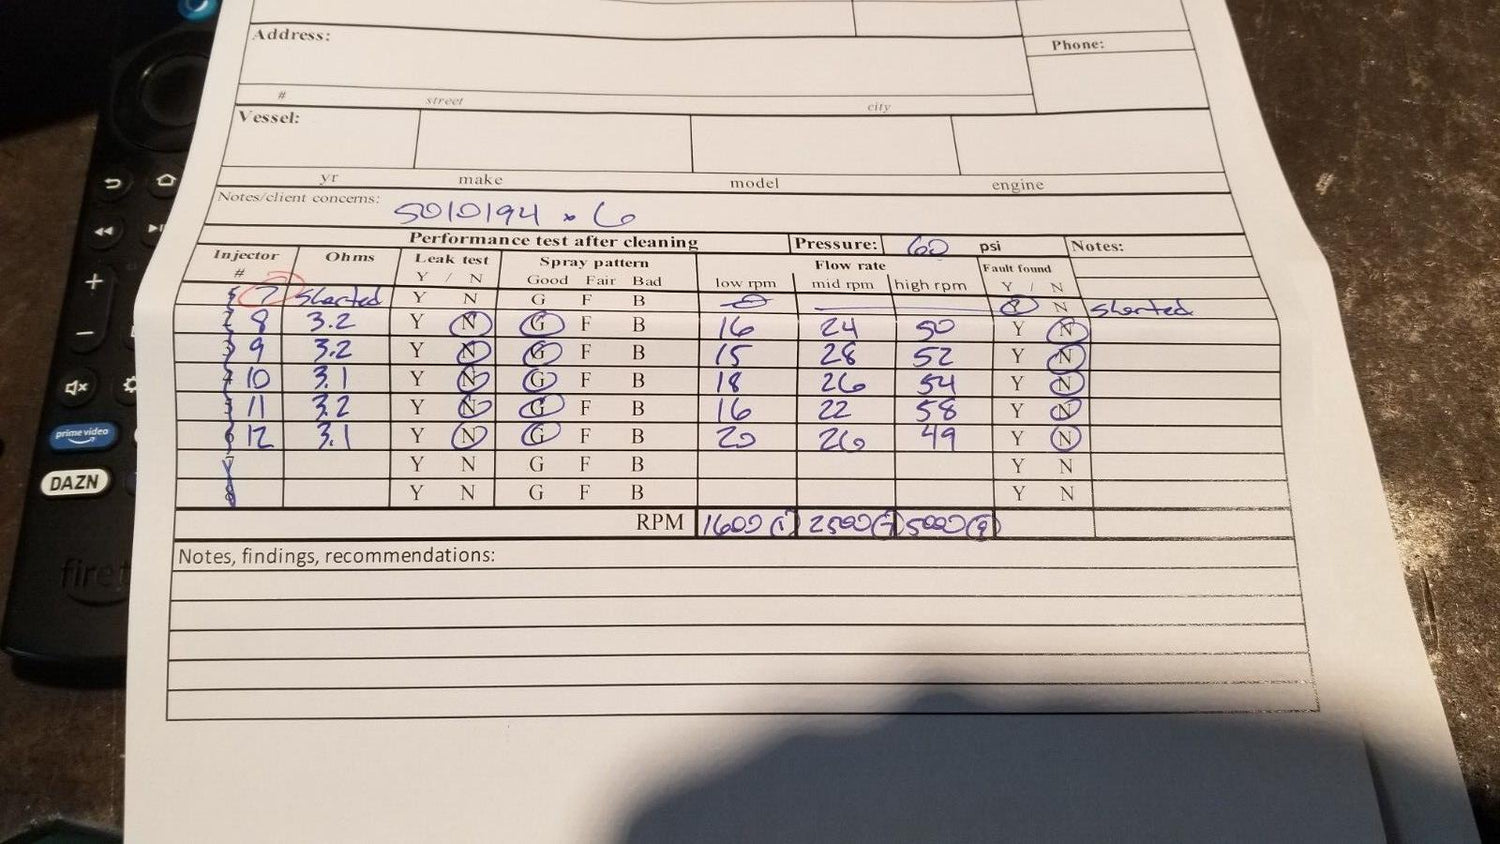 Address:
Phone:
# street city
Vessel:
yr make model engine
Notes/client concerns: 5010194 x 6
Performance test after cleaning Pressure: 60 psi Notes:
Injector # Ohms Leak test Y / N Spray pattern Good Fair Bad Flow rate low rpm mid rpm high rpm Fault found Y / N
7 Shorted Y N G F B 0 Y N shorted
8 3.2 Y N G F B 16 24 50 Y N
9 3.2 Y N G F B 15 28 52 Y N
10 3.1 Y N G F B 18 26 54 Y N
11 3.2 Y N G F B 16 22 58 Y N
12 3.1 Y N G F B 20 26 49 Y N
Y N G F B Y N
Y N G F B Y N
RPM 1600 (1) 2500 5000 (9)
Notes, findings, recommendations:
prime video
DAZN
fire